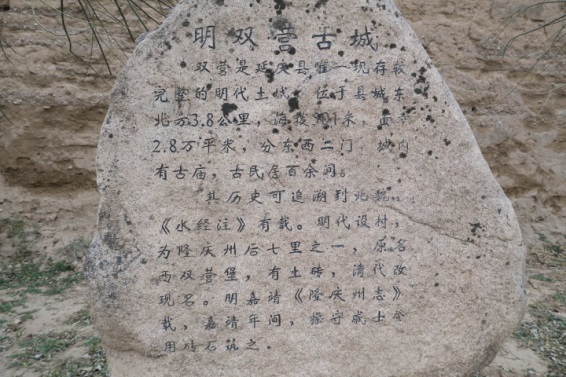 明双营古城
双营是延庆县唯一现存较
完整的明代土城，位于县城东
北方3.8公里，海拔
2.8万平米，分东西二门 城内
有古庙，古民居百余间。
其历史可追溯到北魏，
《水经注》有载。明代设村，
为隆庆州后七里之一，原名
西双营堡，有土砖，清代改
现名。明嘉靖《隆庆州志》
载，嘉靖年间，操守戚士
用砖石筑之。